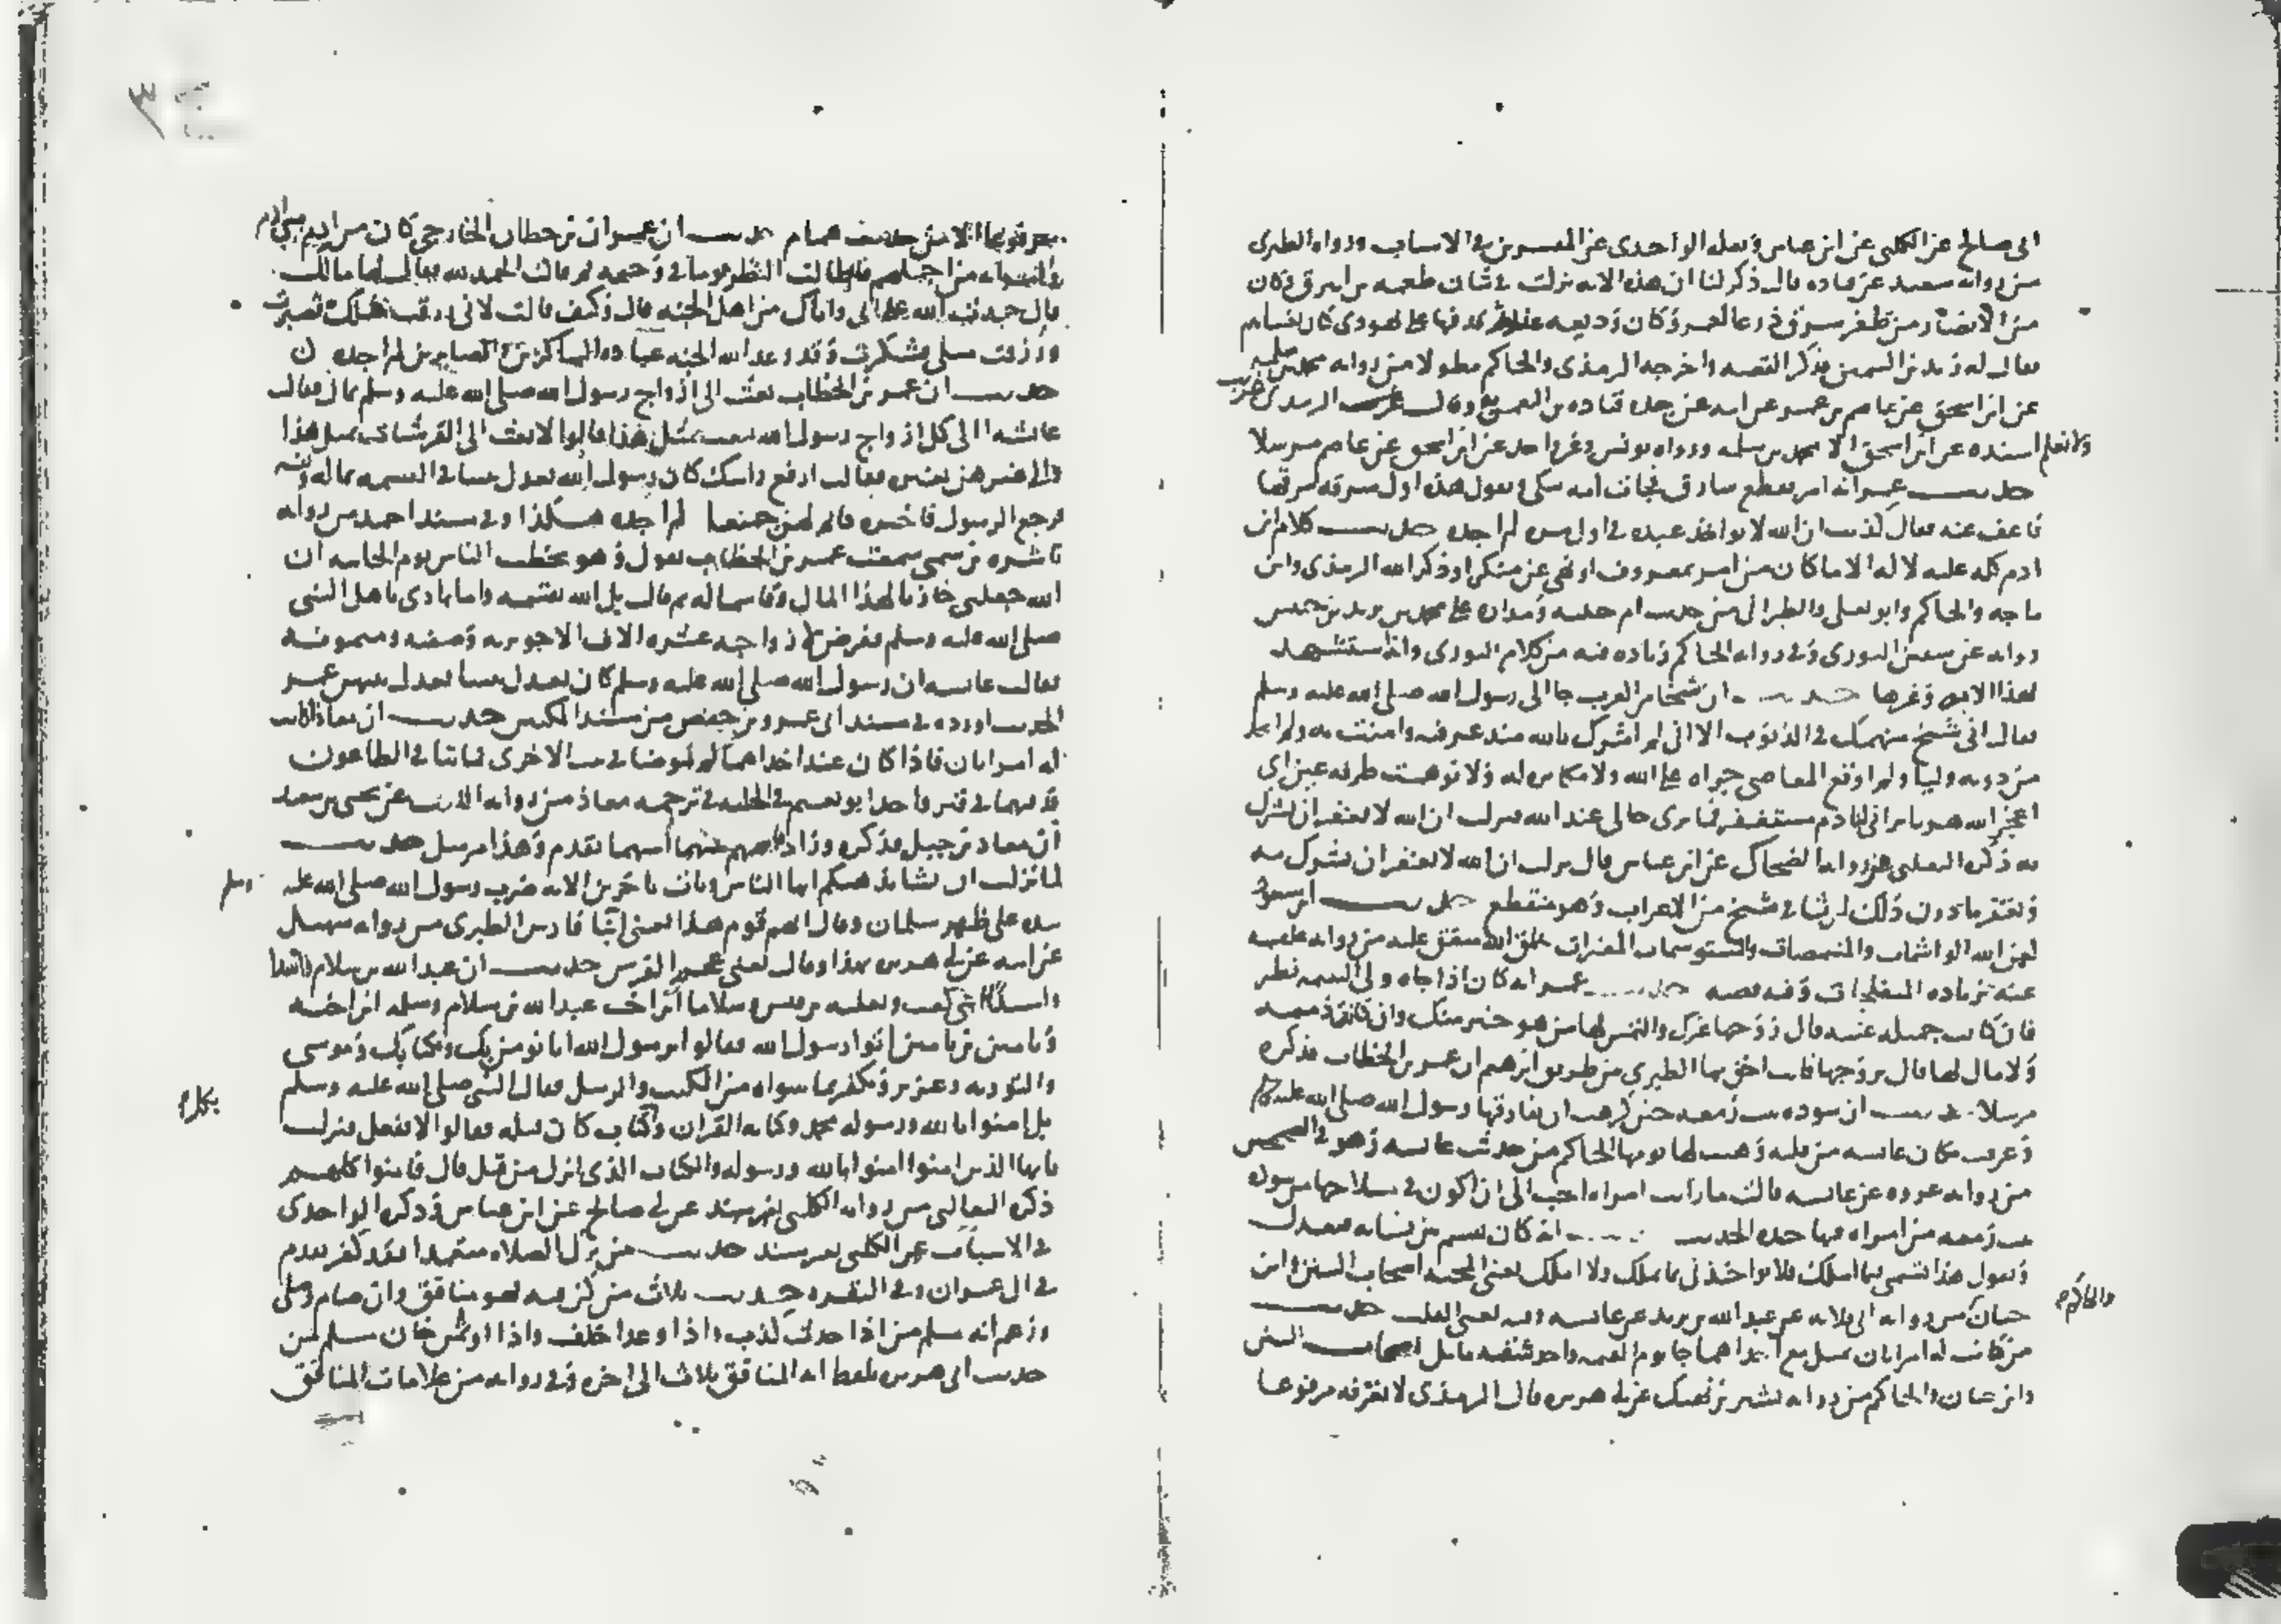 ابى صالح عن الكلبى عن ابن عباس ونقله الواحدى عن المفسرين فى الاسباب ورواه الطبرى
من رواية سعيد عن قتاده قال ذكر لنا ان هذه الايه نزلت فى شان طعمه بن ابيرق وكان
من الانصار من ظفر سرق درعا لعمه وكان وديعه عنده فقذفها على يهودى كان يغشاهم
يقال له زيد بن السمين فذكر القصه واخرجه الترمذى والحاكم مطولا من روايه محمد بن سلمه
عن ابن اسحق عن عاصم بن عمر عن ابيه عن جده قتاده بن النعمن وقال الترمذى غريب
ولا نعلم اسنده عن ابن اسحق الا محمد بن سلمه ورواه يونس وغير واحد عن ابن اسحق عن عاصم مرسلا
حديث عمر انه امر بقطع سارق فجات امه تبكى وتقول هذه اول سرقه سرقها
فاعف عنه فقال كذبت ان الله لا يواخذ عبده فى اول مره لم اجده حديث كلام ابن
ادم كله عليه لا له الا ما كان من امر بمعروف او نهى عن منكر او ذكر الله الترمذى وابن
ماجه والحاكم وابو يعلى والطبرانى من حديث ام حبيبه ومداره على محمد بن يزيد بن خنيس
روايه عن سعيد الثورى وفى روايه الحاكم زياده فيه من كلام الثورى وانه استشهد
لهذا الايه وغيرها حديث ان شيخا من العرب جا الى رسول الله صلى الله عليه وسلم
فقال انى شيخ منهمك فى الذنوب الا انى لم اشرك بالله منذ عرفته وامنت به ولم اتخذ
من دونه وليا ولم اوقع المعاصى جراه على الله ولا مكابره له ولا توهمت طرفه عين انى
اعجز الله هربا وانى لنادم مستغفر فما ترى حالى عند الله فنزلت ان الله لا يغفر ان يشرك
به ذكره الثعلبى من روايه الضحاك عن ابن عباس قال نزلت ان الله لا يغفر ان يشرك به
ويغفر ما دون ذلك لمن يشا فى شيخ من الاعراب وهو منقطع حديث ابن مسعود
لعن الله الواشمات والمتنمصات والمستوشمات المغيرات خلق الله متفق عليه من روايه علقمه
عنه بزياده المتفلجات وفيه قصه حديث عمر انه كان اذا جاه ولى اليتيمه نظر
فان كانت جميله غنيه قال زوجها غيرك والتمس لها من هو خير منك وان كانت دميمه
ولا مال لها قال تزوجها فانت احق بها الطبرى من طريق ابرهيم ان عمر بن الخطاب فذكره
مرسلا حديث ان سوده بنت زمعه حين كرهت ان يفارقها رسول الله صلى الله عليه وسلم
وعرفت مكان عايشه من قلبه وهبت لها يومها الحاكم من حديث عايشه وهو فى الصحيحين
من روايه عروه عن عايشه قالت ما رايت امراه احب الى ان اكون فى مسلاخها من سوده
بنت زمعه من امراه فيها حده الحديث انه كان يقسم بين نسايه فيعدل
ويقول هذا قسمى فيما املك فلا تواخذنى بما تملك ولا املك يعنى المحبه اصحاب السنن وابن
حبان والحاكم من روايه ابى قلابه عن عبد الله بن يزيد عن عايشه وفيه يعنى القلب حديث
من كانت له امراتان يميل مع احداهما جا يوم القيمه واحد شقيه مايل اصحاب السنن
وابن حبان والحاكم من روايه بشير بن نهيك عن ابى هريره قال الترمذى لا نعرفه مرفوعا
الا من حديث همام حديث ان عمران بن حطان الخارجى كان من ادم بنى ادم
وامراته من اجملهم فاطالت النظر يوما فى وجهه ثم قالت الحمد لله فقال لها مالك
قال حمدت الله على انى واياك من اهل الجنه قال وكيف قالت لانك رزقت مثلك فصبرت
ورزقت مثلى فشكرت وقد وعد الله الجنه عباده الشاكرين والصابرين لم اجده
حديث ان عمر بن الخطاب بعث الى ازواج رسول الله صلى الله عليه وسلم بمال فقالت
عايشه الى كل ازواج رسول الله بعث بمثل هذا قالوا لا بعث الى القرشيات بمثل هذا
والى غيرهن بغيره فقالت ارفع راسك كان رسول الله يعدل بيننا فى القسمه بماله ونفسه
فرجع الرسول فاخبره فاتم لهن جميعا لم اجده هكذا وفى مسند احمد من روايه
ناشره بن سمى سمعت عمر بن الخطاب يقول وهو يخطب الناس يوم الجابيه ان
الله جعلنى خازنا لهذا المال وقاسما له ثم قال بل الله يقسمه وانا بادى باهل النبى
صلى الله عليه وسلم ففرض لازواجه عشره الاف الا جويريه وصفيه وميمونه
فقالت عايشه ان رسول الله صلى الله عليه وسلم كان يعدل بيننا فعدل بينهن عمر
الحديث اورده فى مسند ابى عمرو بن حفص من مسند المكيين حديث ان معاذ كانت
له امراتان فاذا كان عند احداهما لم يتوضا فى بيت الاخرى فماتتا فى الطاعون
فدفنهما فى قبر واحد ابو نعيم فى الحليه فى ترجمه معاذ من روايه الليث عن يحيى بن سعيد
ان معاذ بن جبل فذكره وزاد فاسهم بينهما ايهما تقدم وهذا مرسل حديث
لما نزلت ان يشا يذهبكم ايها الناس ويات باخرين الايه ضرب رسول الله صلى الله عليه وسلم
بيده على ظهر سلمان وقال انهم قوم هذا يعنى ابنا فارس الطبرى من روايه سهيل
عن ابيه عن ابى هريره بهذا وقال يعنى عجم الفرس حديث ان عبد الله بن سلام واسدا
واسيدا ابنى كعب وثعلبه بن قيس وسلاما ابن اخت عبد الله بن سلام وسلمه ابن اخيه
ويامين بن يامين اتوا رسول الله فقالوا يرسول الله انا نومن بك وبكتابك وموسى
والتوريه وعزير ونكفر بما سواه من الكتب والرسل فقال النبى صلى الله عليه وسلم
بل امنوا بالله ورسوله محمد وكتابه القران وبكل كتاب كان قبله فقالوا لا نفعل فنزلت
يايها الذين امنوا امنوا بالله ورسوله والكتاب الذى انزل من قبل قال فامنوا كلهم
ذكره الثعالبى من روايه الكلبى عن ابى صالح عن ابن عباس وذكره الواحدى
فى الاسباب عن الكلبى بغير سند حديث من ترك الصلاه متعمدا فقد كفر تقدم
فى ال عمران وفى البقره حديث ثلاث من كن فيه فهو منافق وان صام وصلى
وزعم انه مسلم من اذا حدث كذب واذا وعد اخلف واذا اوتمن خان مسلم من
حديث ابى هريره بلفظ ايه المنافق ثلاث الى اخره وفى روايه من علامات المنافق